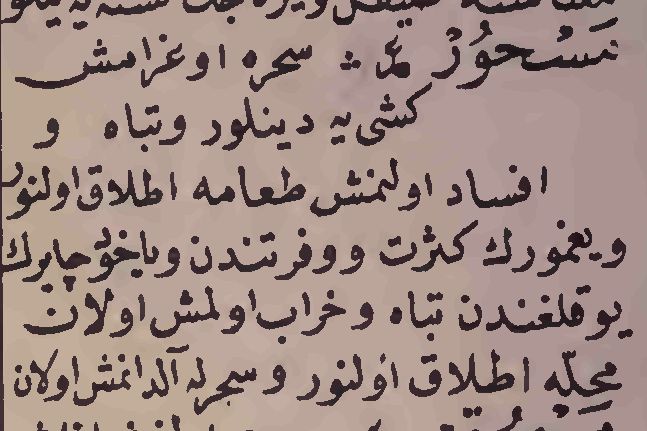 مسحور ع‍ ؞ سحره اوغرامش
كشى يه دينلور وتباه و
افساد اولنمش طعامه اطلاق اولنور
ويغمورك كثرت ووفرتندن وياخود چايرك
يوقلغندن تباه وخراب اولمش اولان
محلّه اطلاق اولنور وسحرله آلدانمش اولان